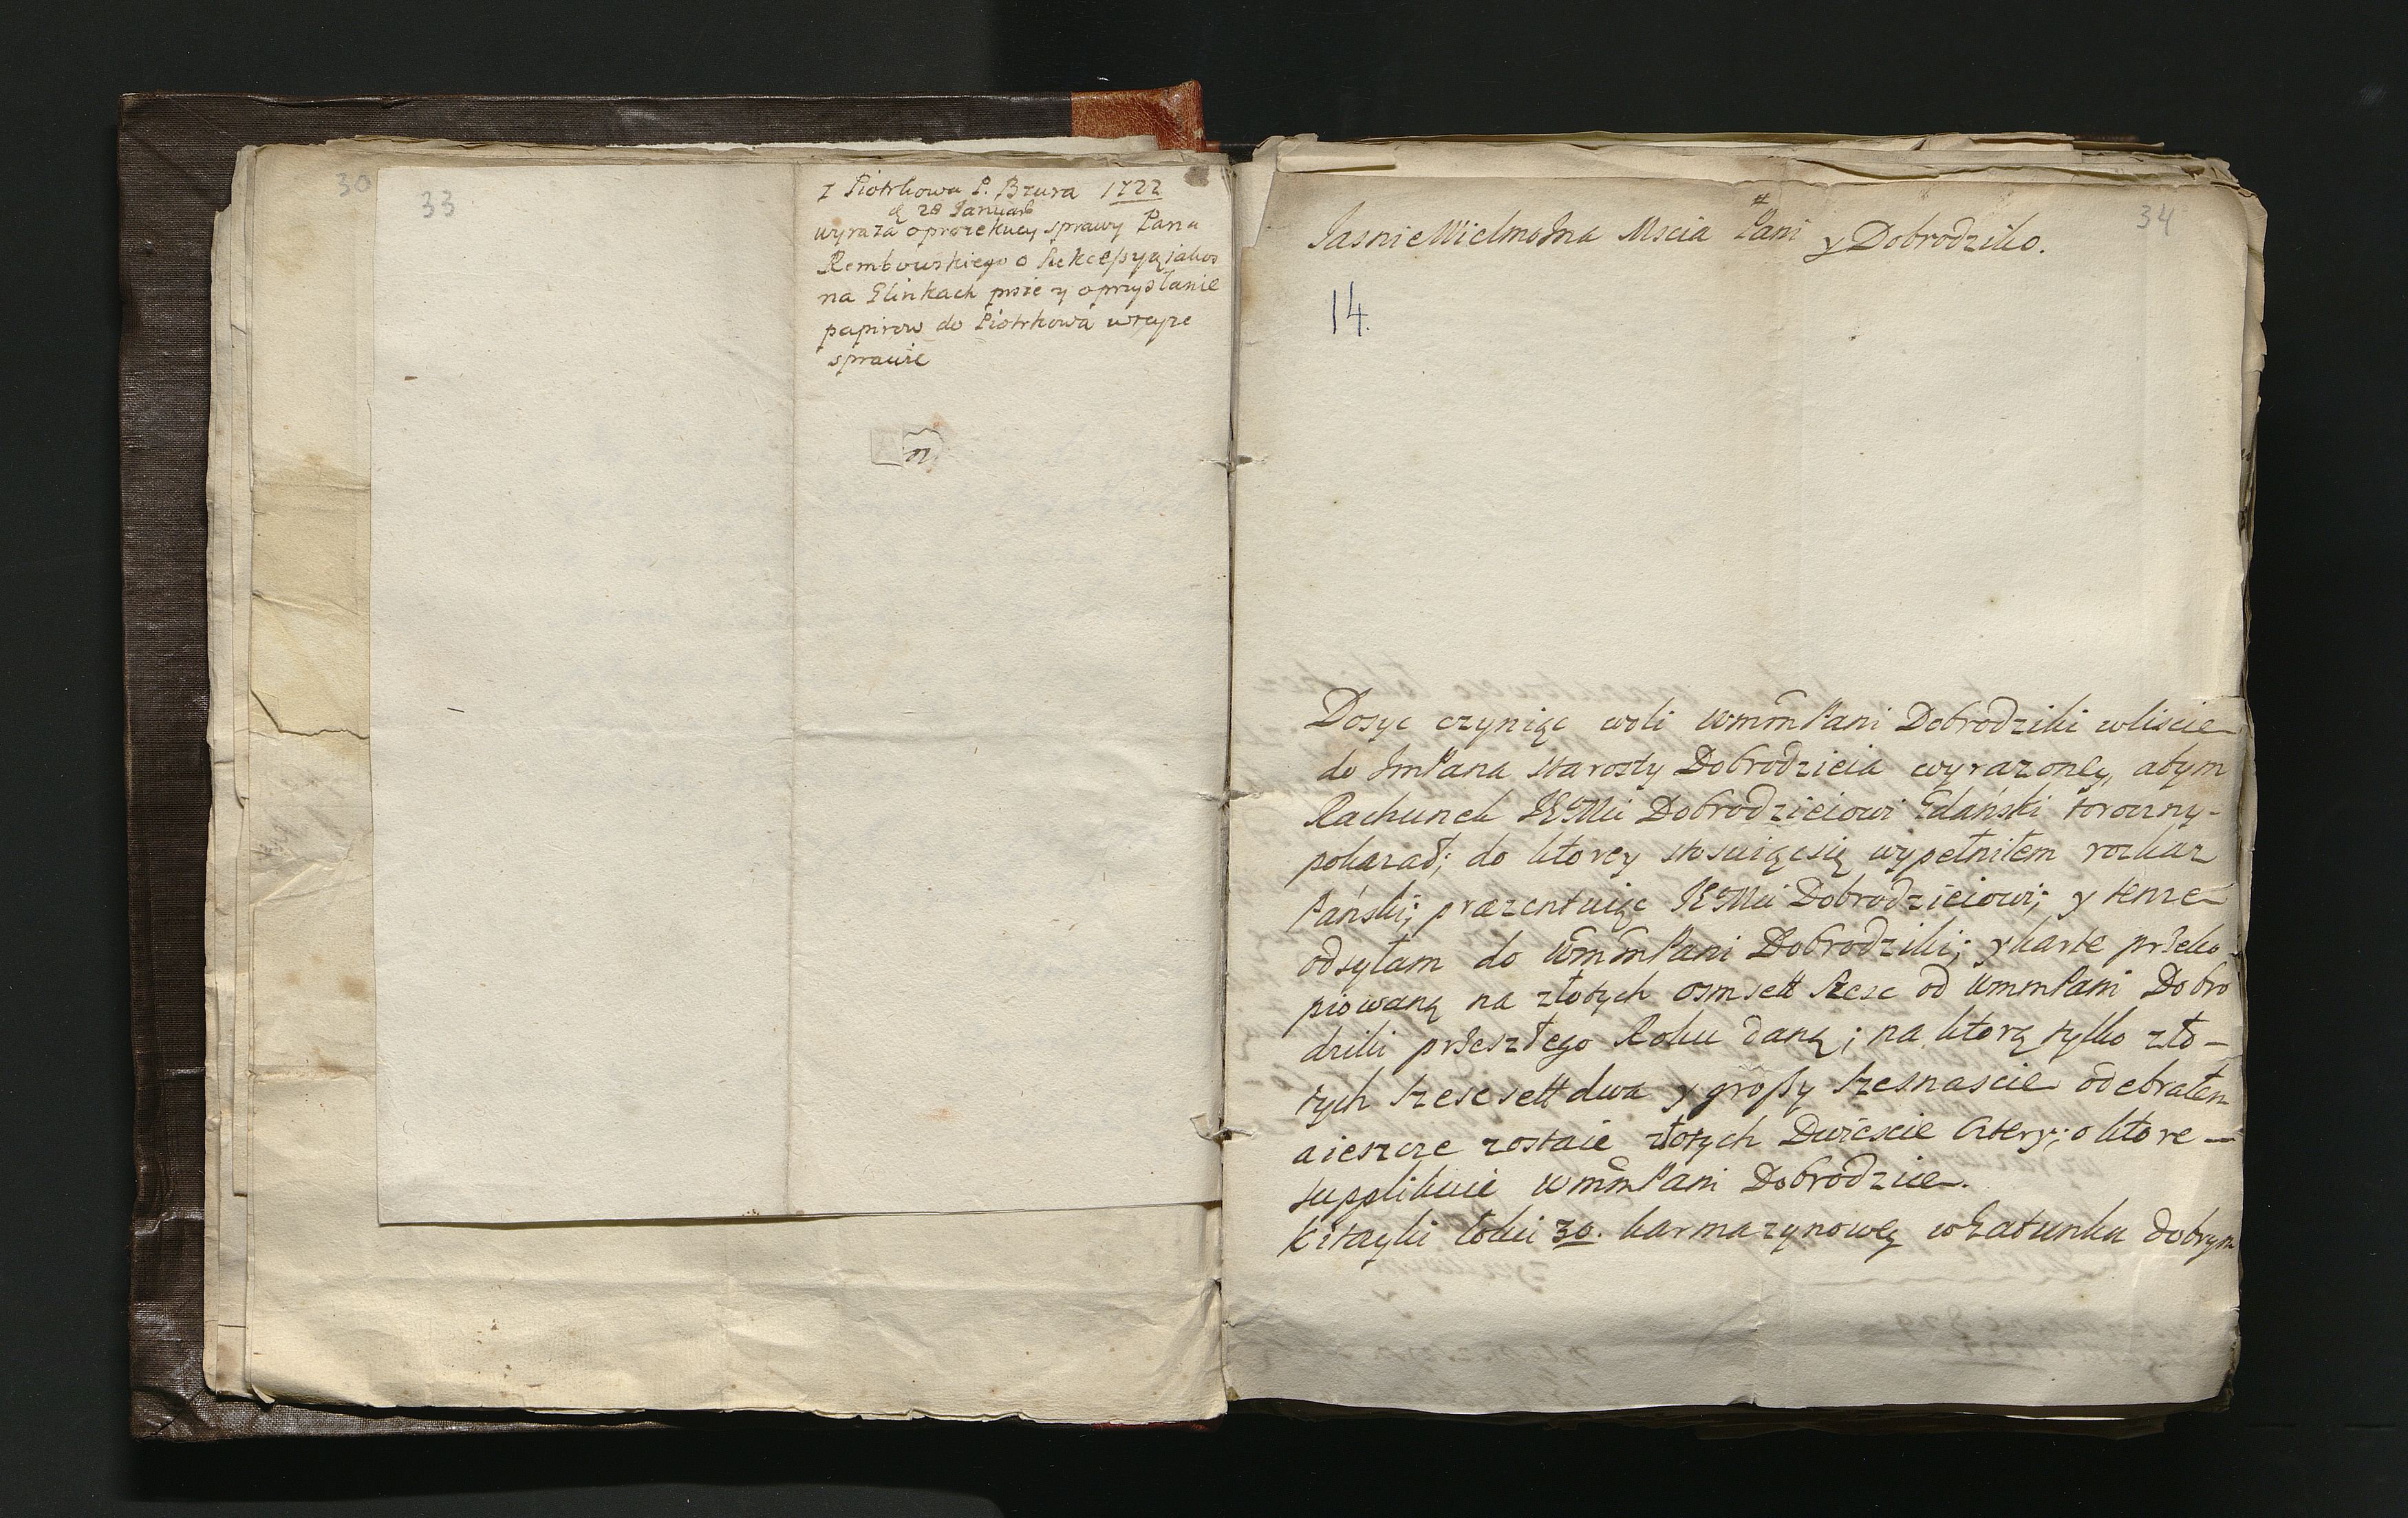 30
33
Z Piotrkowa P. Bzura 1722
d 28 Januarii
wyraza o prozekucy sprawy Pana
Rembowskiego o
na Glinkach prze y o przysłanie
papirow do Piotrkowa w teyze
sprawie
34
Jasnie Wielmozna Mscia Pani y Dobrodziko.
14.
Dosyc czyniąc woli WMM Pani Dobrodziki w liscie
do JmPana Starosty Dobrodzieia wyrazoney, abym
Rachunek JEMci Dobrodzieiowi Gdański
pokazał; do ktorey stosuiącsię wypełniłem rozkaz
Pański; prezentuiąc JEMci Dobrodzieiowi; y tenze
odsyłam do WMMPani Dobrodziki; y karte przeko
piowaną na złotych osmsett szesc od WMMPani Dobro
dziki przeszłego Roku daną; na ktorą tylko zło–
tych szescsett dwa y groszy szesnascie odebrałem
a ieszcze zostaie złotych Dwiescie Cztery; o ktore –
supplikuie WMMPani Dobrodzice.
Kitayki łokci 30. karmazynowey w Gatunku dobrym